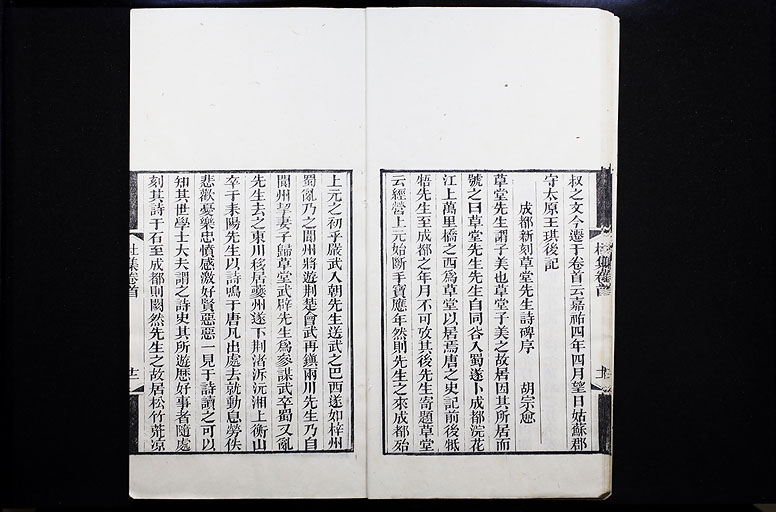 叔之文今遷于卷首云嘉祐四年四月望日姑蘇郡
守太原王琪後記
成都新刻草堂先生詩碑序 胡宗愈
草堂先生謂子美也草堂子美之故居因其所居而
號之曰草堂先生先生自同谷入蜀遂卜成都浣花
江上萬里橋之西爲草堂以居焉唐之史記前後牴
牾先生至成都之年月不可攷其後先生寄題草堂
云經營上元始斷手寶應年然則先生之來成都殆
上元之初乎嚴武入朝先生送武之巴西遂如梓州
蜀亂乃之閬州將遊荆楚會武再鎮兩川先生乃自
閬州挈妻子歸草堂武辟先生爲參謀武卒蜀又亂
先生去之東川移居夔州遂下荆渚泝沅湘上衡山
卒于耒陽先生以詩鳴于唐凡出處去就動息勞佚
悲歡憂樂忠憤感激好賢惡惡一見于詩讀之可以
知其世學士大夫謂之詩史其所遊歷好事者隨處
刻其詩于石至成都則闕然先生之故居松竹荒涼
杜集卷首